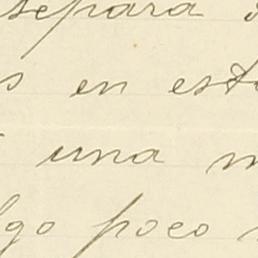 separa
en est
una m
go poco